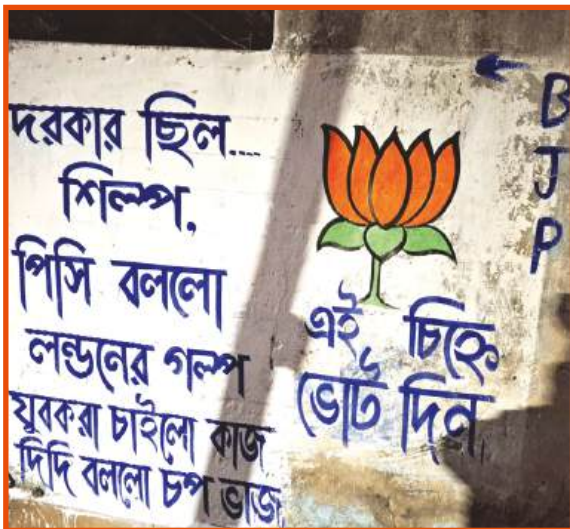 দরকার ছিল....
শিল্প,
পিসি বললো
লন্ডনের গল্প
যুবকরা চাইলো কাজ
দিদি বললো চপ ভাজ
এই চিহ্নে
ভোট দিন
BJP